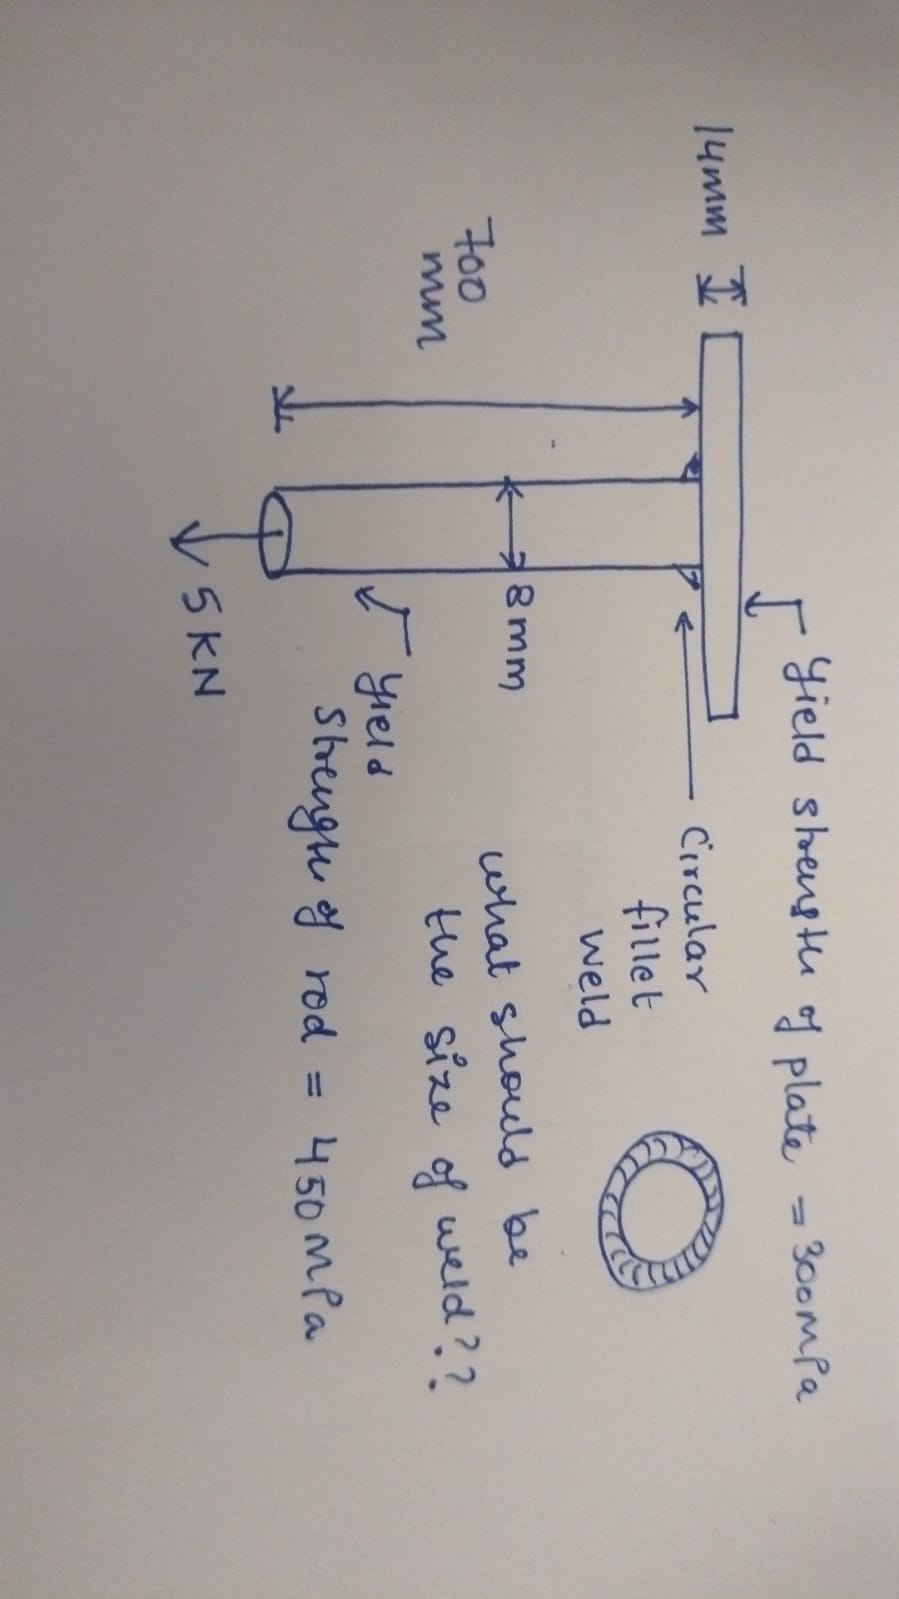 Yield strength of plate = 300MPa
14mm
Circular
fillet
weld
700
mm
8mm
what should be
the size of weld??
Yield
Strength of rod = 450MPa
5KN